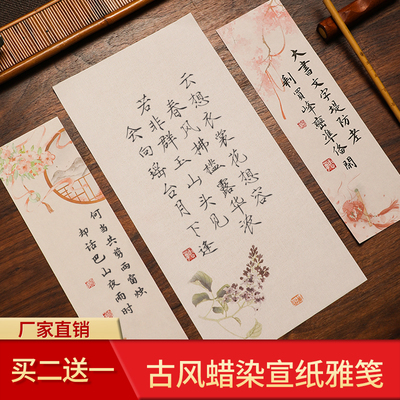 云想衣裳花想容
春风拂槛露华浓
若非群玉山头见
会向瑶台月下逢
大書文字堤防老
剩買峰巒準俻閒
何当共剪西窗烛
却话巴山夜雨时
厂家直销
买二送一
古风蜡染宣纸雅笺